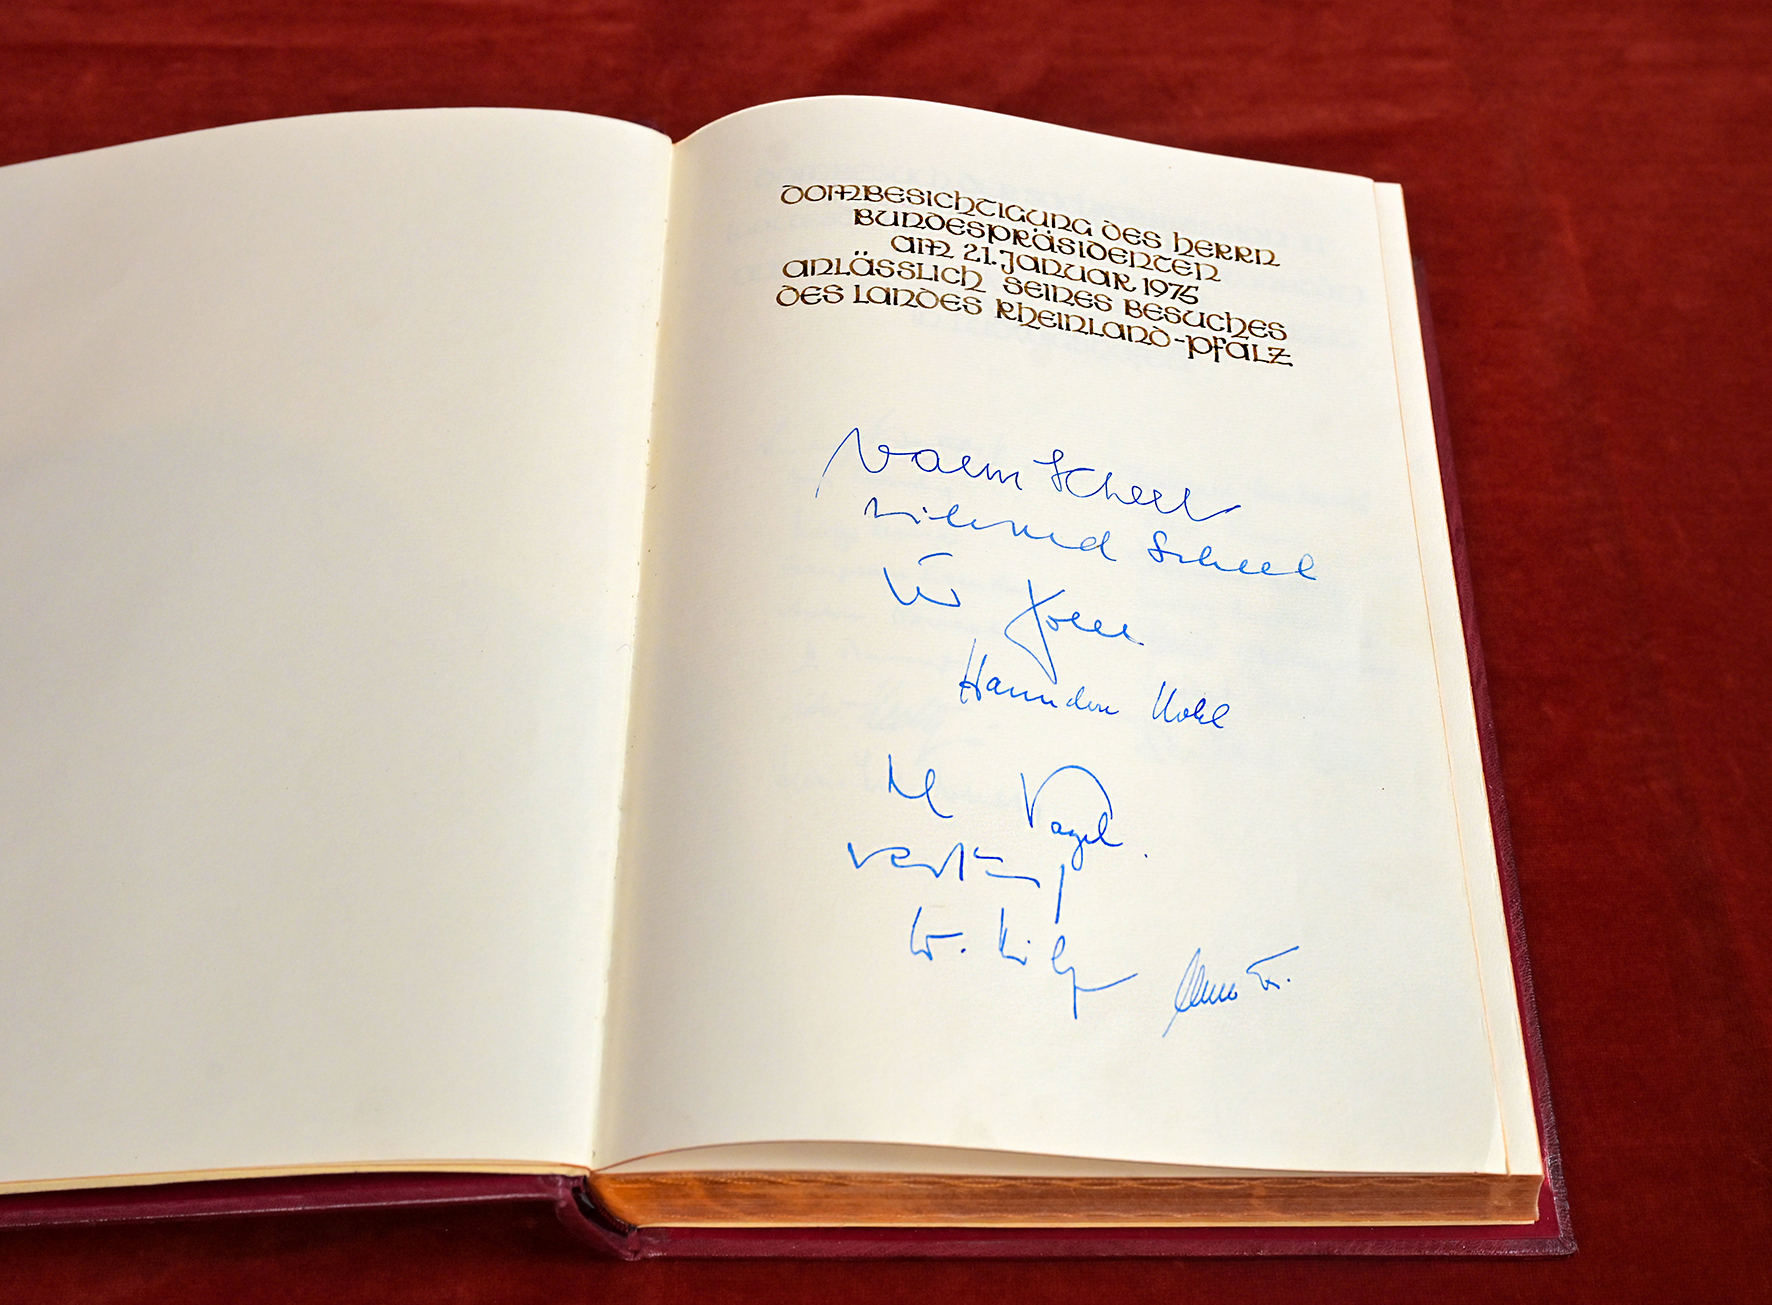 DOMBESICHTIGUNG DES HERRN
BUNDESPRÄSIDENTEN
AM 21. JANUAR 1975
ANLÄSSLICH SEINES BESUCHES
DES LANDES RHEINLAND-PFALZ
Walter Scheel
Mildred Scheel
Kohl
Hannelore Kohl
Vogel
W.